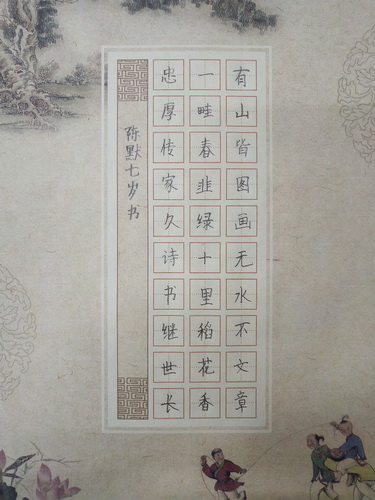 有山皆图画无水不文章
一畦春韭绿十里稻花香
忠厚传家久诗书继世长
陈默七岁书